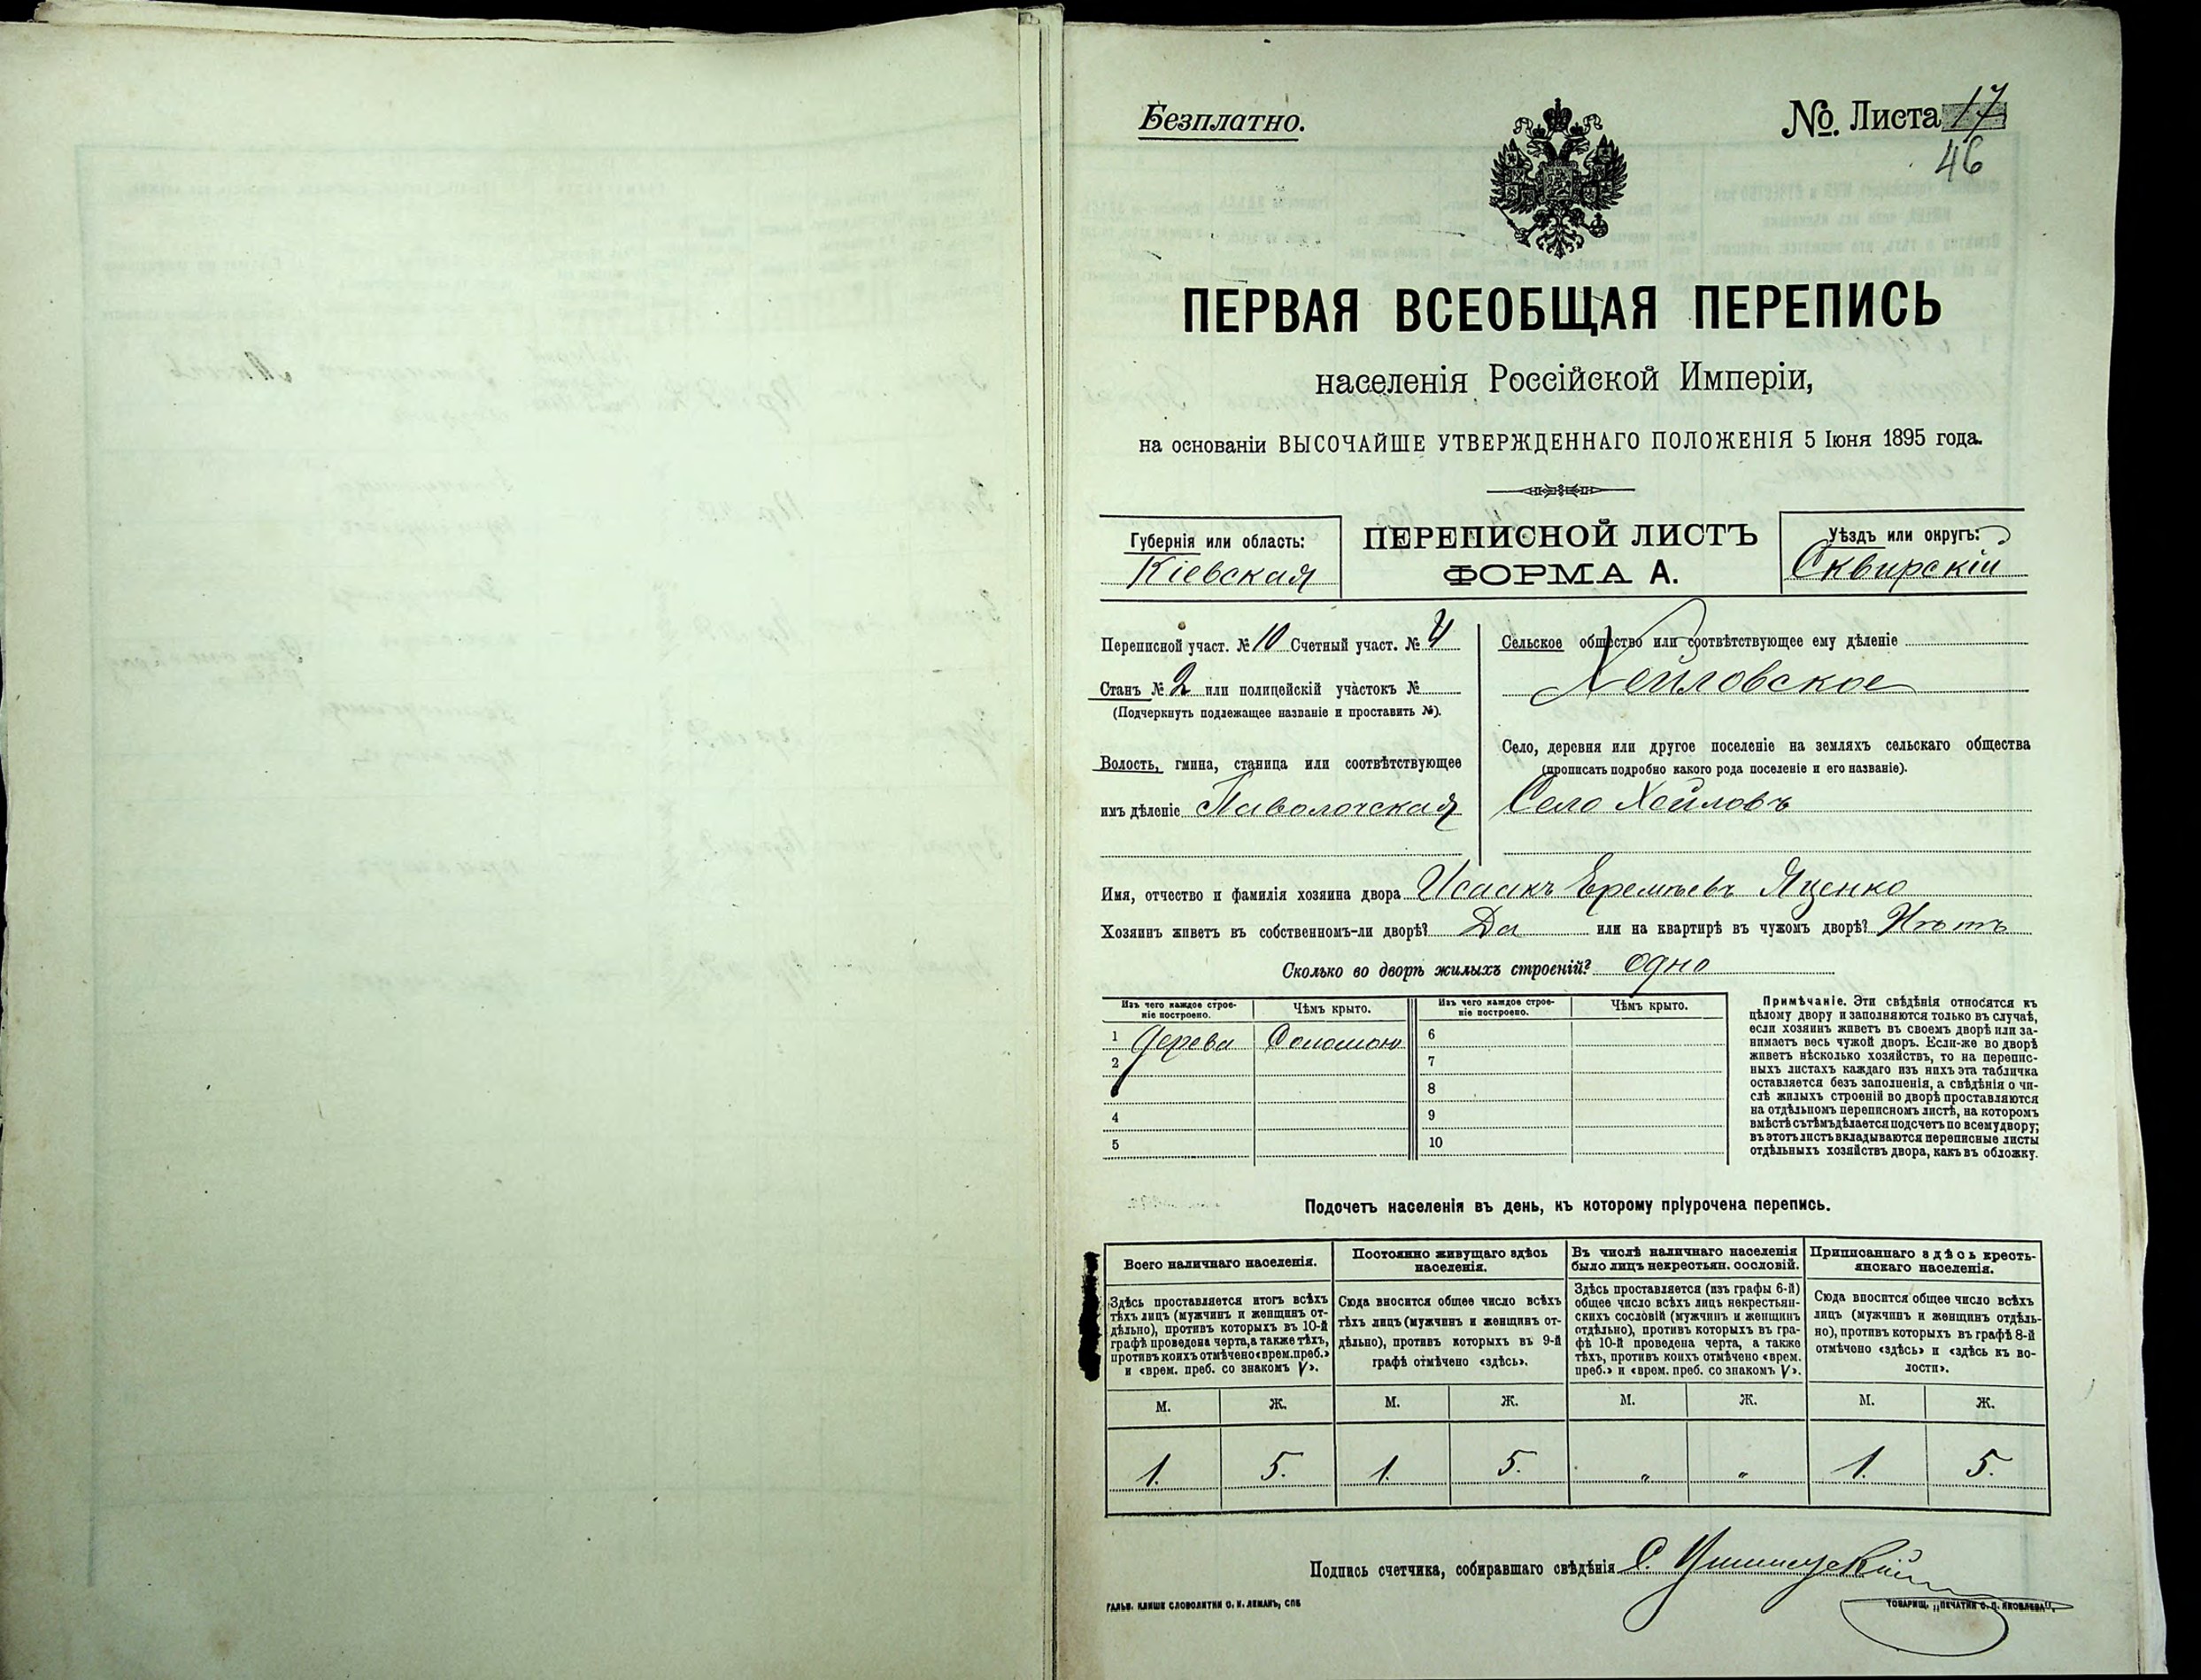 Безплатно.
№. Листа 17
46
ПЕРВАЯ ВСЕОБЩАЯ ПЕРЕПИСЬ
населенія Россійской Имперіи,
на основаніи ВЫСОЧАЙШЕ УТВЕРЖДЕННАГО ПОЛОЖЕНІЯ 5 Іюня 1895 года.
Губернія или область:
Кіевская
ПЕРЕПИСНОЙ ЛИСТЪ
ФОРМА А.
Уѣздъ или округъ:
Сквирскій
Переписной участ. № 10 Счетный участ. № 4
Станъ № 2 или полицейскій участокъ №
(Подчеркнуть подлежащее названіе и проставить №).
Волость, гмина, станица или соотвѣтствующее
имъ дѣленіе Паволочская
Сельское общество или соотвѣтствующее ему дѣленіе
Хейловское
Село, деревня или другое поселеніе на земляхъ сельскаго общества
(прописать подробно какого рода поселеніе и его названіе).
Село Хейловъ
Имя, отчество и фамилія хозяина двора Исаакъ Еремѣевъ Яценко
Хозяинъ живетъ въ собственномъ-ли дворѣ? Да или на квартирѣ въ чужомъ дворѣ? Нѣтъ
Сколько во дворѣ жилыхъ строеній? одно
Изъ чего каждое строе-
ніе построено.
Чѣмъ крыто.
Изъ чего каждое строе-
ніе построено.
Чѣмъ крыто.
1 Дерева Соломою 6
2 7
8
4 9
5 10
Примѣчаніе. Эти свѣдѣнія относятся къ
цѣлому двору и заполняются только въ случаѣ,
если хозяинъ живетъ въ своемъ дворѣ или за-
нимаетъ весь чужой дворъ. Если-же во дворѣ
живетъ нѣсколько хозяйствъ, то на перепис-
ныхъ листахъ каждаго изъ нихъ эта табличка
оставляется безъ заполненія, а свѣдѣнія о чи-
слѣ жилыхъ строеній во дворѣ проставляются
на отдѣльномъ переписномъ листѣ, на которомъ
вмѣстѣ съ тѣмъ дѣлается подсчетъ по всему двору;
въ этотъ листъ вкладываются переписные листы
отдѣльныхъ хозяйствъ двора, какъ въ обложку.
Подсчетъ населенія въ день, къ которому пріурочена перепись.
Всего наличнаго населенія.
Здѣсь проставляется итогъ всѣхъ
тѣхъ лицъ (мужчинъ и женщинъ от-
дѣльно), противъ которыхъ въ 10-й
графѣ проведена черта, а также тѣхъ,
противъ коихъ отмѣчено «врем. преб.»
и «врем. преб. со знакомъ V».
Постоянно живущаго здѣсь
населенія.
Сюда вносится общее число всѣхъ
тѣхъ лицъ (мужчинъ и женщинъ от-
дѣльно), противъ которыхъ въ 9-й
графѣ отмѣчено «здѣсь».
Въ числѣ наличнаго населенія
было лицъ некрестьян. сословій.
Здѣсь проставляется (изъ графы 6-й)
общее число всѣхъ лицъ некрестьян-
скихъ сословій (мужчинъ и женщинъ
отдѣльно), противъ которыхъ въ гра-
фѣ 10-й проведена черта, а также
тѣхъ, противъ коихъ отмѣчено «врем.
преб.» и «врем. преб. со знакомъ V».
Приписаннаго здѣсь кресть-
янскаго населенія.
Сюда вносится общее число всѣхъ
лицъ (мужчинъ и женщинъ отдѣль-
но), противъ которыхъ въ графѣ 8-й
отмѣчено «здѣсь» и «здѣсь къ во-
лости».
М. Ж. М. Ж. М. Ж. М. Ж.
1. 5. 1. 5. " " 1. 5.
Подпись счетчика, собиравшаго свѣдѣнія С.
ГАЛЬВ. КЛИШЕ СЛОВОЛИТНИ О. И. ЛЕМАНЪ, СПБ
ТОВАРИЩ. „ПЕЧАТНИ С. П. ЯКОВЛЕВА".